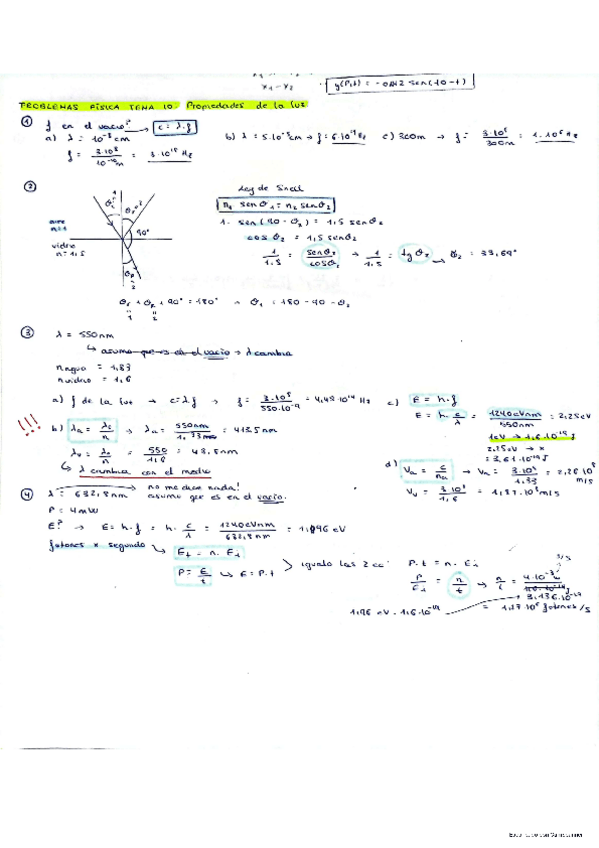 x₁ - x₂
y(P,t) = -0,42 sen(10-t)
PROBLEMAS FÍSICA TEMA 10. Propiedades de la luz
① f en el vacío? → c = λ·f
a) λ = 10⁻⁸ cm
f = 3·10⁸ / 10⁻¹⁰ m = 3·10¹⁸ Hz
b) λ = 5·10⁻⁵ cm → f = 6·10¹⁴ Hz
c) 300m → f = 3·10⁸ / 300m = 1·10⁶ Hz
②
aire
n=1
vidrio
n=1,5
90°
Ley de Snell
n₁ senθ₁ = n₂ senθ₂
1· sen(90-θ₂) = 1,5 senθ₂
cosθ₂ = 1,5 senθ₂
1/1,5 = senθ₂/cosθ₂ → 1/1,5 = tgθ₂ → θ₂ = 33,69°
+ 90° = 180° → θ₁ = 180 - 90 - θ₂
③ λ = 550nm
↳ asumo que es en el vacío → λ cambia
nagua = 1,33
nvidrio = 1,6
a) f de la luz → c=λf → f = 3·10⁸ / 550·10⁻⁹
c) E = h·f
E = h· c/λ = 1240eVnm / 550nm = 2,25eV
1eV → 1,6·10⁻¹⁹ J
2,25eV → x
= 3,61·10⁻¹⁹ J
!!! b) λa = λ₀/n → λa = 550nm / 1,33 = 413,5nm
λv = λ₀/n = 550/1,6
↳ λ cambia con el medio
d) Va = c/na → Va = 3·10⁸ / 1,33 = 2,26·10⁸ m/s
Vv = 3·10⁸ / 1,6 = 1,87·10⁸ m/s
④ λ = 632,8nm
no me dicen nada!
asumo que es en el vacío.
P = 4mW
E? → E = h·f = h· c/λ = 1240eVnm / 632,8nm = 1,96 eV
fotones x segundo
Et = n·E₁
P = E/t → E = P·t
igualo las 2 ec:
P·t = n·E₁
P/E₁ = n/t → n/t = 4·10⁻³
J/s
3,136·10⁻¹⁹
1,96 eV · 1,6·10⁻¹⁹
fotones/s